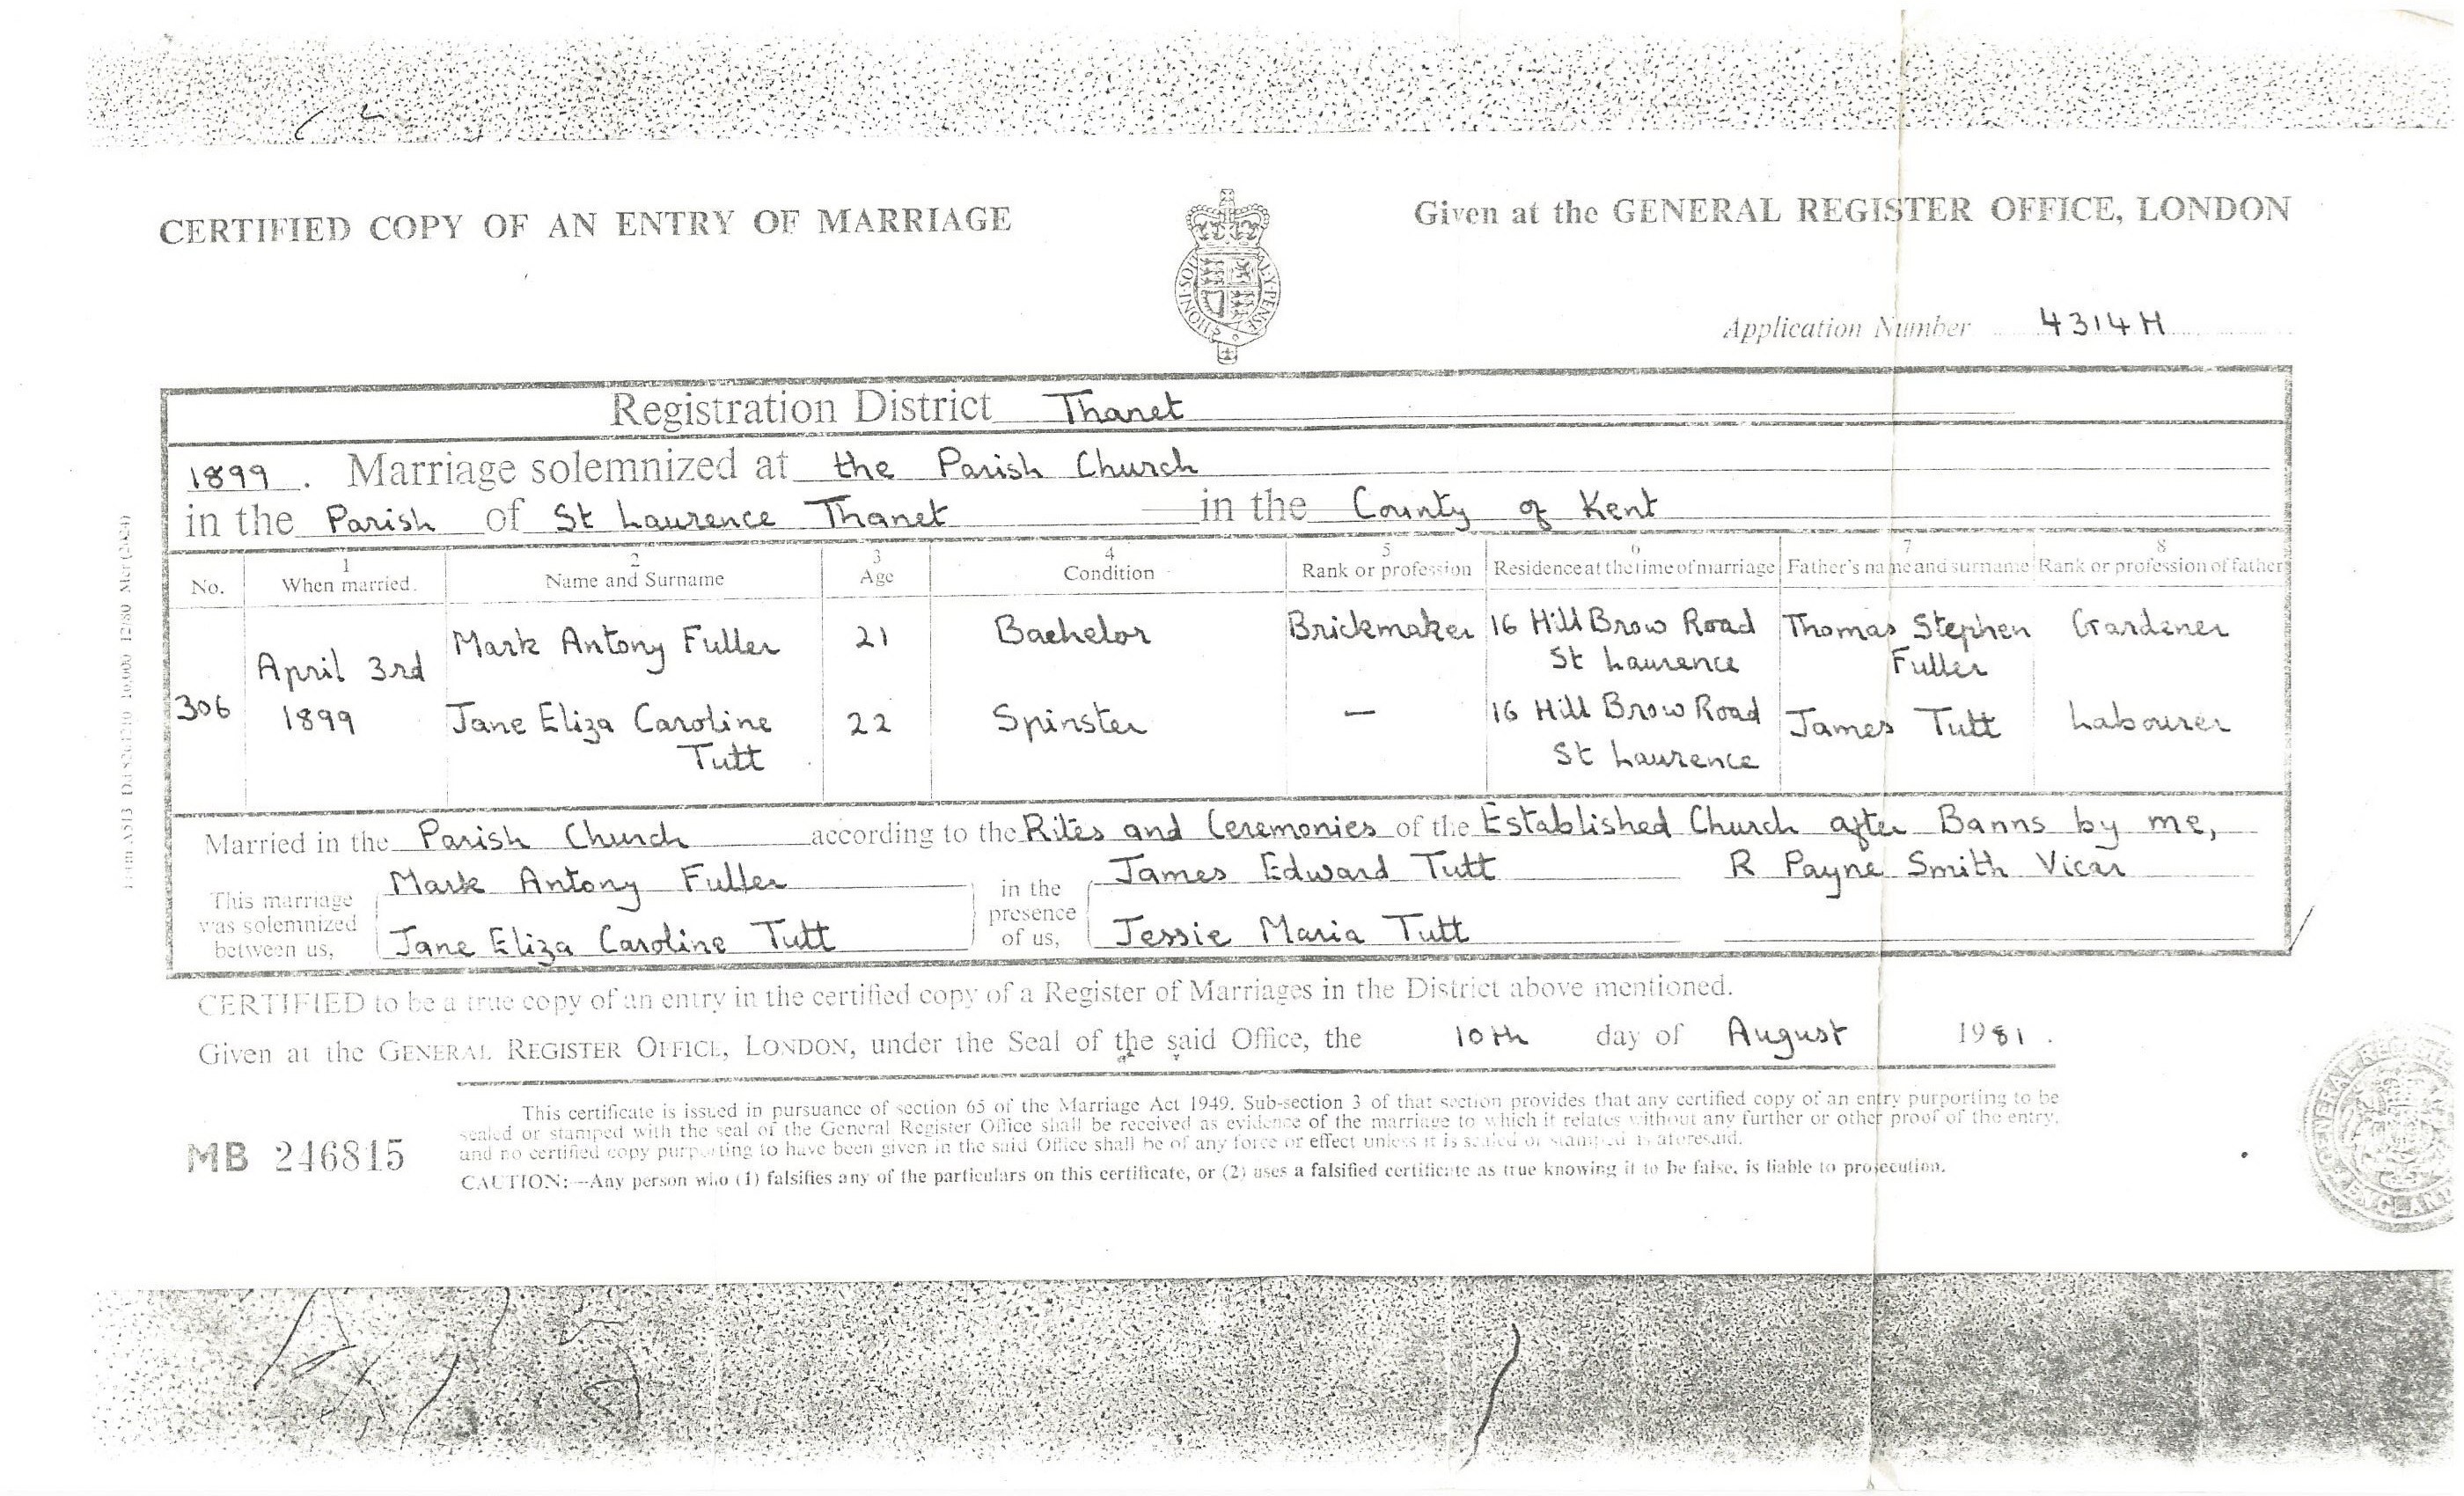 CERTIFIED COPY OF AN ENTRY OF MARRIAGE
Given at the GENERAL REGISTER OFFICE, LONDON
HONI·SOIT AL·Y·PENSE
Application Number 4314H
Registration District Thanet
1899. Marriage solemnized at the Parish Church
in the Parish of St Laurence Thanet in the County of Kent
1 2 3 4 5 6 7 8
No. When married. Name and Surname Age Condition Rank or profession Residence at the time of marriage Father's name and surname Rank or profession of father
306 April 3rd 1899
Mark Antony Fuller 21 Bachelor Brickmaker 16 Hill Brow Road St Laurence Thomas Stephen Fuller Gardener
Jane Eliza Caroline Tutt 22 Spinster — 16 Hill Brow Road St Laurence James Tutt Labourer
Married in the Parish Church according to the Rites and Ceremonies of the Established Church after Banns by me,
This marriage was solemnized between us,
Mark Antony Fuller
Jane Eliza Caroline Tutt
in the presence of us,
James Edward Tutt
Jessie Maria Tutt
R Payne Smith Vicar
CERTIFIED to be a true copy of an entry in the certified copy of a Register of Marriages in the District above mentioned.
Given at the GENERAL REGISTER OFFICE, LONDON, under the Seal of the said Office, the 10th day of August 1981.
This certificate is issued in pursuance of section 65 of the Marriage Act 1949. Sub-section 3 of that section provides that any certified copy of an entry purporting to be
sealed or stamped with the seal of the General Register Office shall be received as evidence of the marriage to which it relates without any further or other proof of the entry,
and no certified copy purporting to have been given in the said Office shall be of any force or effect unless it is sealed or stamped as aforesaid.
CAUTION:—Any person who (1) falsifies any of the particulars on this certificate, or (2) uses a falsified certificate as true knowing it to be false, is liable to prosecution.
MB 246815
GENERAL REGISTER
ENGLAND